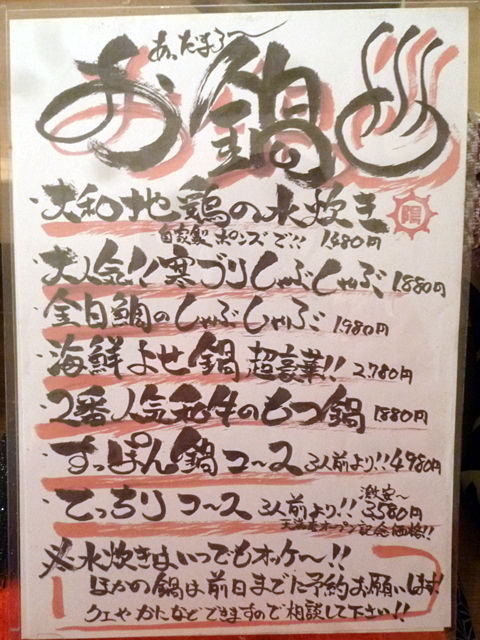 あったまろ〜
お鍋
・大和地鶏の水炊き
自家製ポンズで!! 1,480円
・大人気!! 寒ブリしゃぶしゃぶ 1880円
・金目鯛のしゃぶしゃぶ 1,980円
・海鮮よせ鍋 超豪華!! 2,780円
・2番人気和牛のもつ鍋 1880円
・すっぽん鍋コ〜ス 3人前より!! 4980円
・てっちりコ〜ス 3人前より!! 激安〜 3,580円
オープン記念価格!!
水炊きはいつでもオッケ〜!!
ほかの鍋は前日までに予約お願いします!
クエやかになどできますので相談して下さい!!